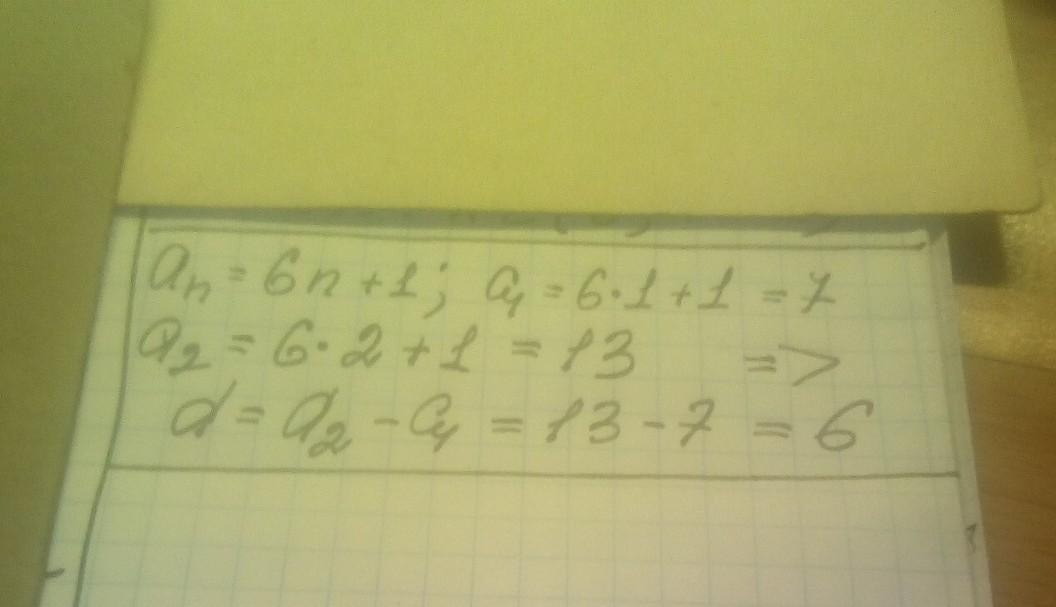 aₙ = 6n + 1; a₁ = 6·1 + 1 = 7
a₂ = 6·2 + 1 = 13 =>
d = a₂ - a₁ = 13 - 7 = 6